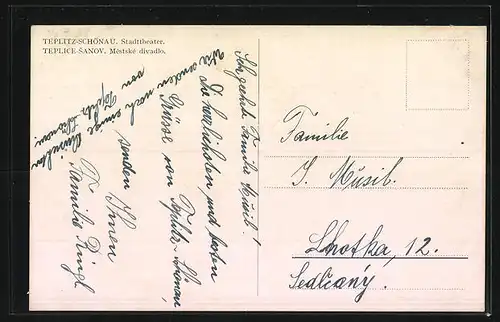 TEPLITZ-SCHÖNAU. Stadttheater.
TEPLICE-ŠANOV. Městské divadlo.
Sehr geehrte Familie Musil!
Die herzlichsten und besten
Grüsse von Teplitz-Schönau,
senden Ihnen
Familie Ringl
Wir senden noch einige Ansichten
von Teplitz-Schönau.
Familie
J. Musil.
Lhotka, 12.
Sedlčaný.